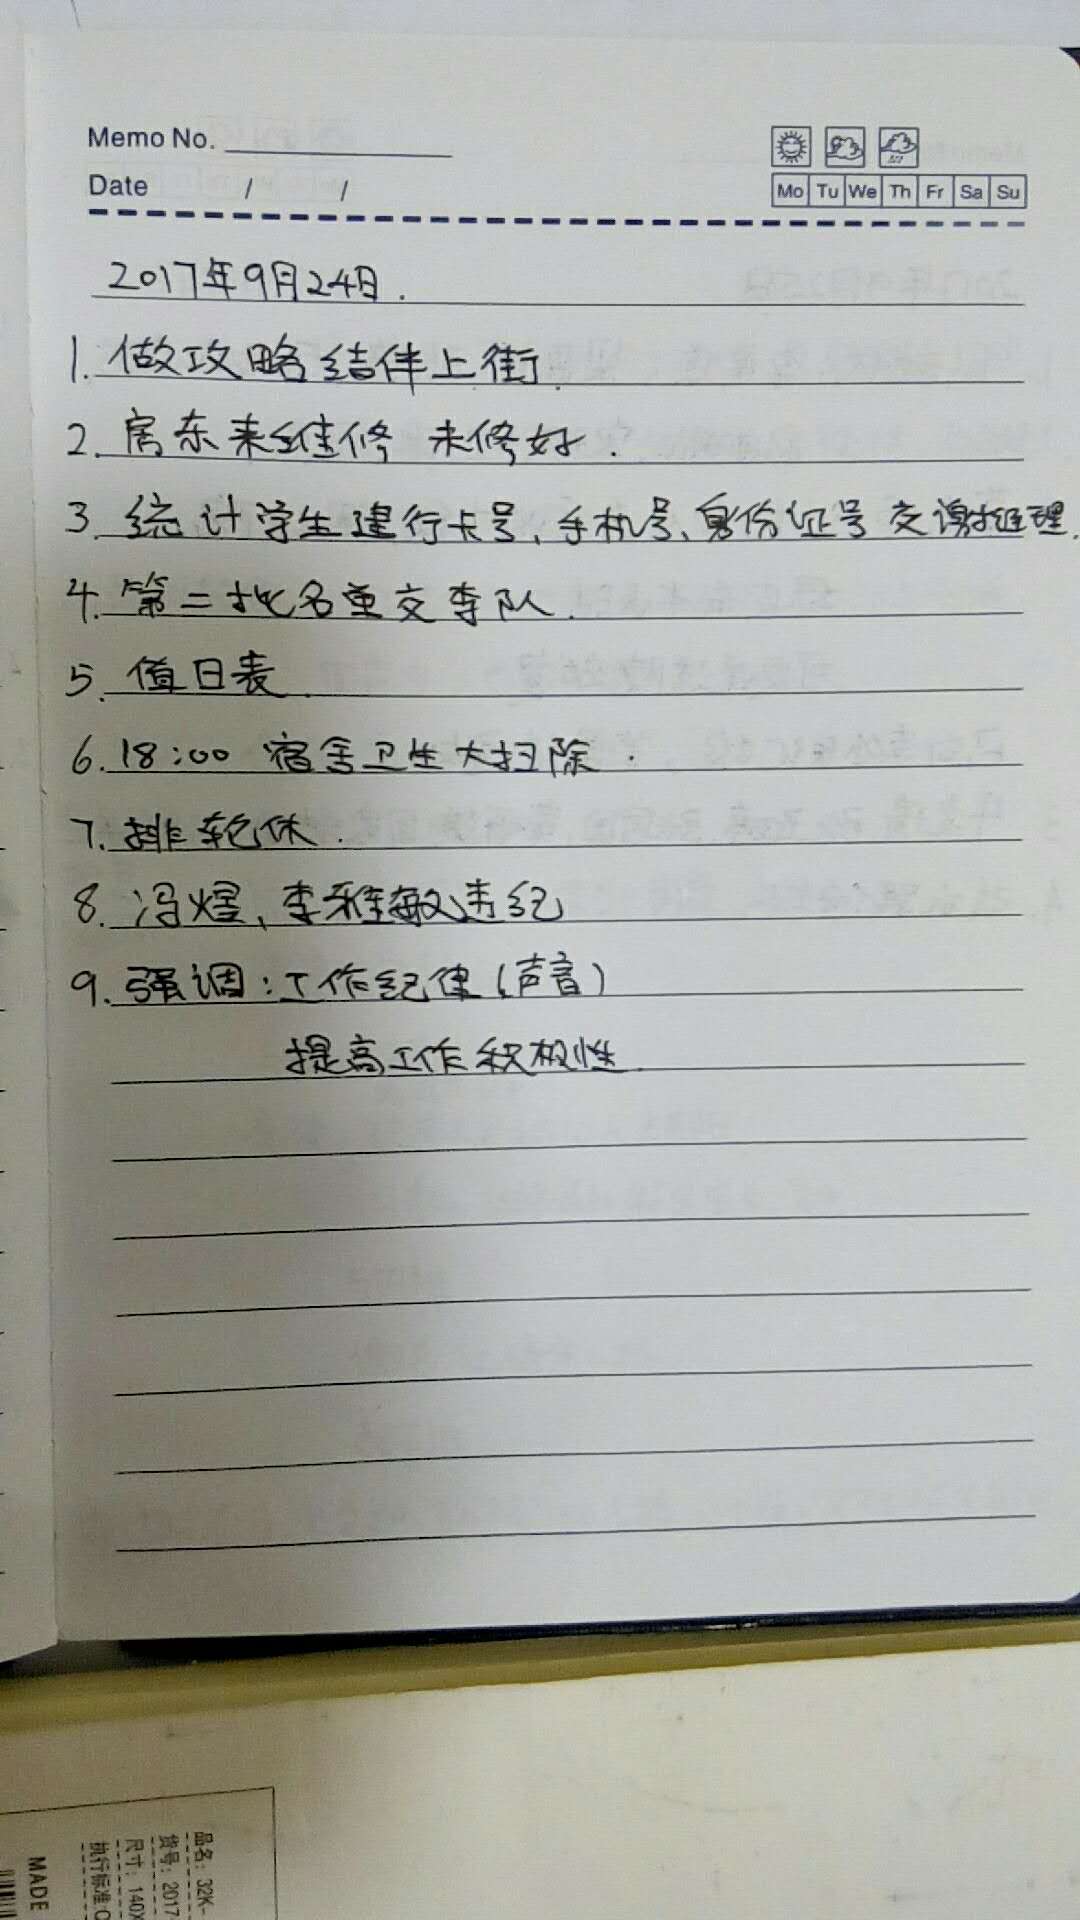 Memo No.
Date / /
Mo Tu We Th Fr Sa Su
2017年9月24日.
1. 做攻略结伴上街.
2. 房东来维修 未修好.
3. 统计学生建行卡号、手机号、身份证号交谢经理.
4. 第二批名单交李队.
5. 值日表.
6. 18:00 宿舍卫生大扫除.
7. 排轮休.
8. 冯煜、李雅敏违纪
9. 强调:工作纪律(声音)
提高工作积极性.
品名: 32K-
货号: 2017
尺寸: 140X
执行标准:Q
MADE